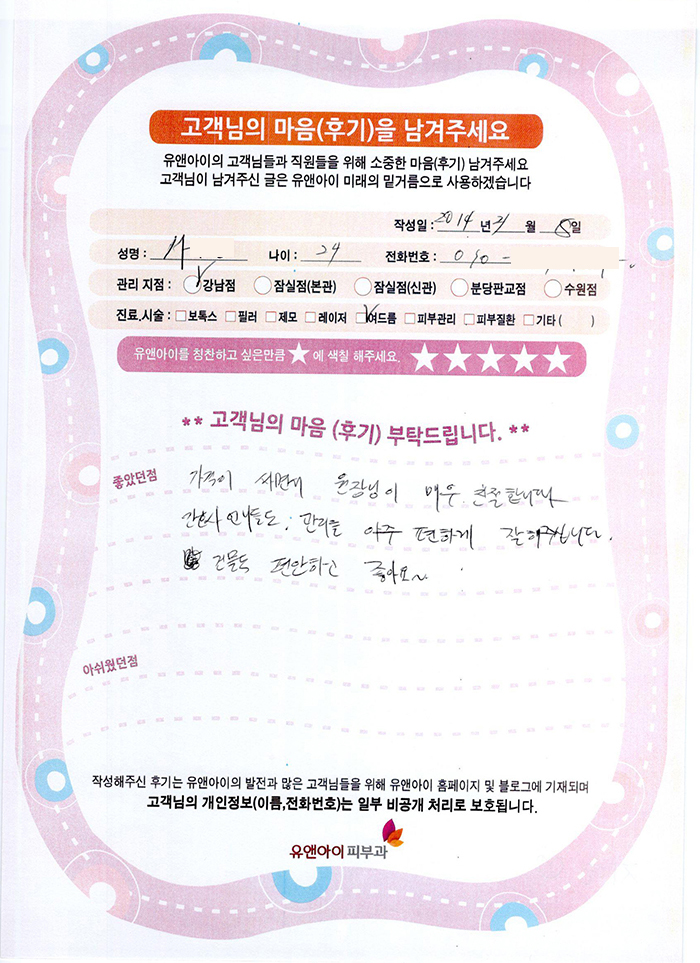 고객님의 마음(후기)을 남겨주세요
유앤아이의 고객님들과 직원들을 위해 소중한 마음(후기) 남겨주세요
고객님이 남겨주신 글은 유앤아이 미래의 밑거름으로 사용하겠습니다
작성일 : 2014 년 월 8일
성명 : 나이 : 24 전화번호 : 010 -
관리 지점 : 강남점 잠실점(본관) 잠실점(신관) 분당판교점 수원점
진료,시술 : 보톡스 필러 제모 레이저 여드름 피부관리 피부질환 기타 ( )
유앤아이를 칭찬하고 싶은만큼 ★ 에 색칠 해주세요. ★★★★★
** 고객님의 마음 (후기) 부탁드립니다. **
좋았던점 가격이 싸면서 원장님이 매우 친절합니다
간호사 언니들도, 관리를 아주 편하게 잘해주십니다.
건물도 편안하고 좋아요~
아쉬웠던점
작성해주신 후기는 유앤아이의 발전과 많은 고객님들을 위해 유앤아이 홈페이지 및 블로그에 기재되며
고객님의 개인정보(이름,전화번호)는 일부 비공개 처리로 보호됩니다.
유앤아이피부과